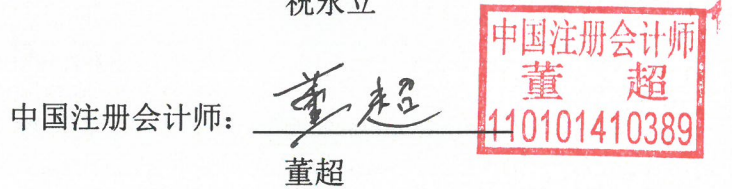 祝永立
中国注册会计师
董 超
110101410389
中国注册会计师：董超
董超